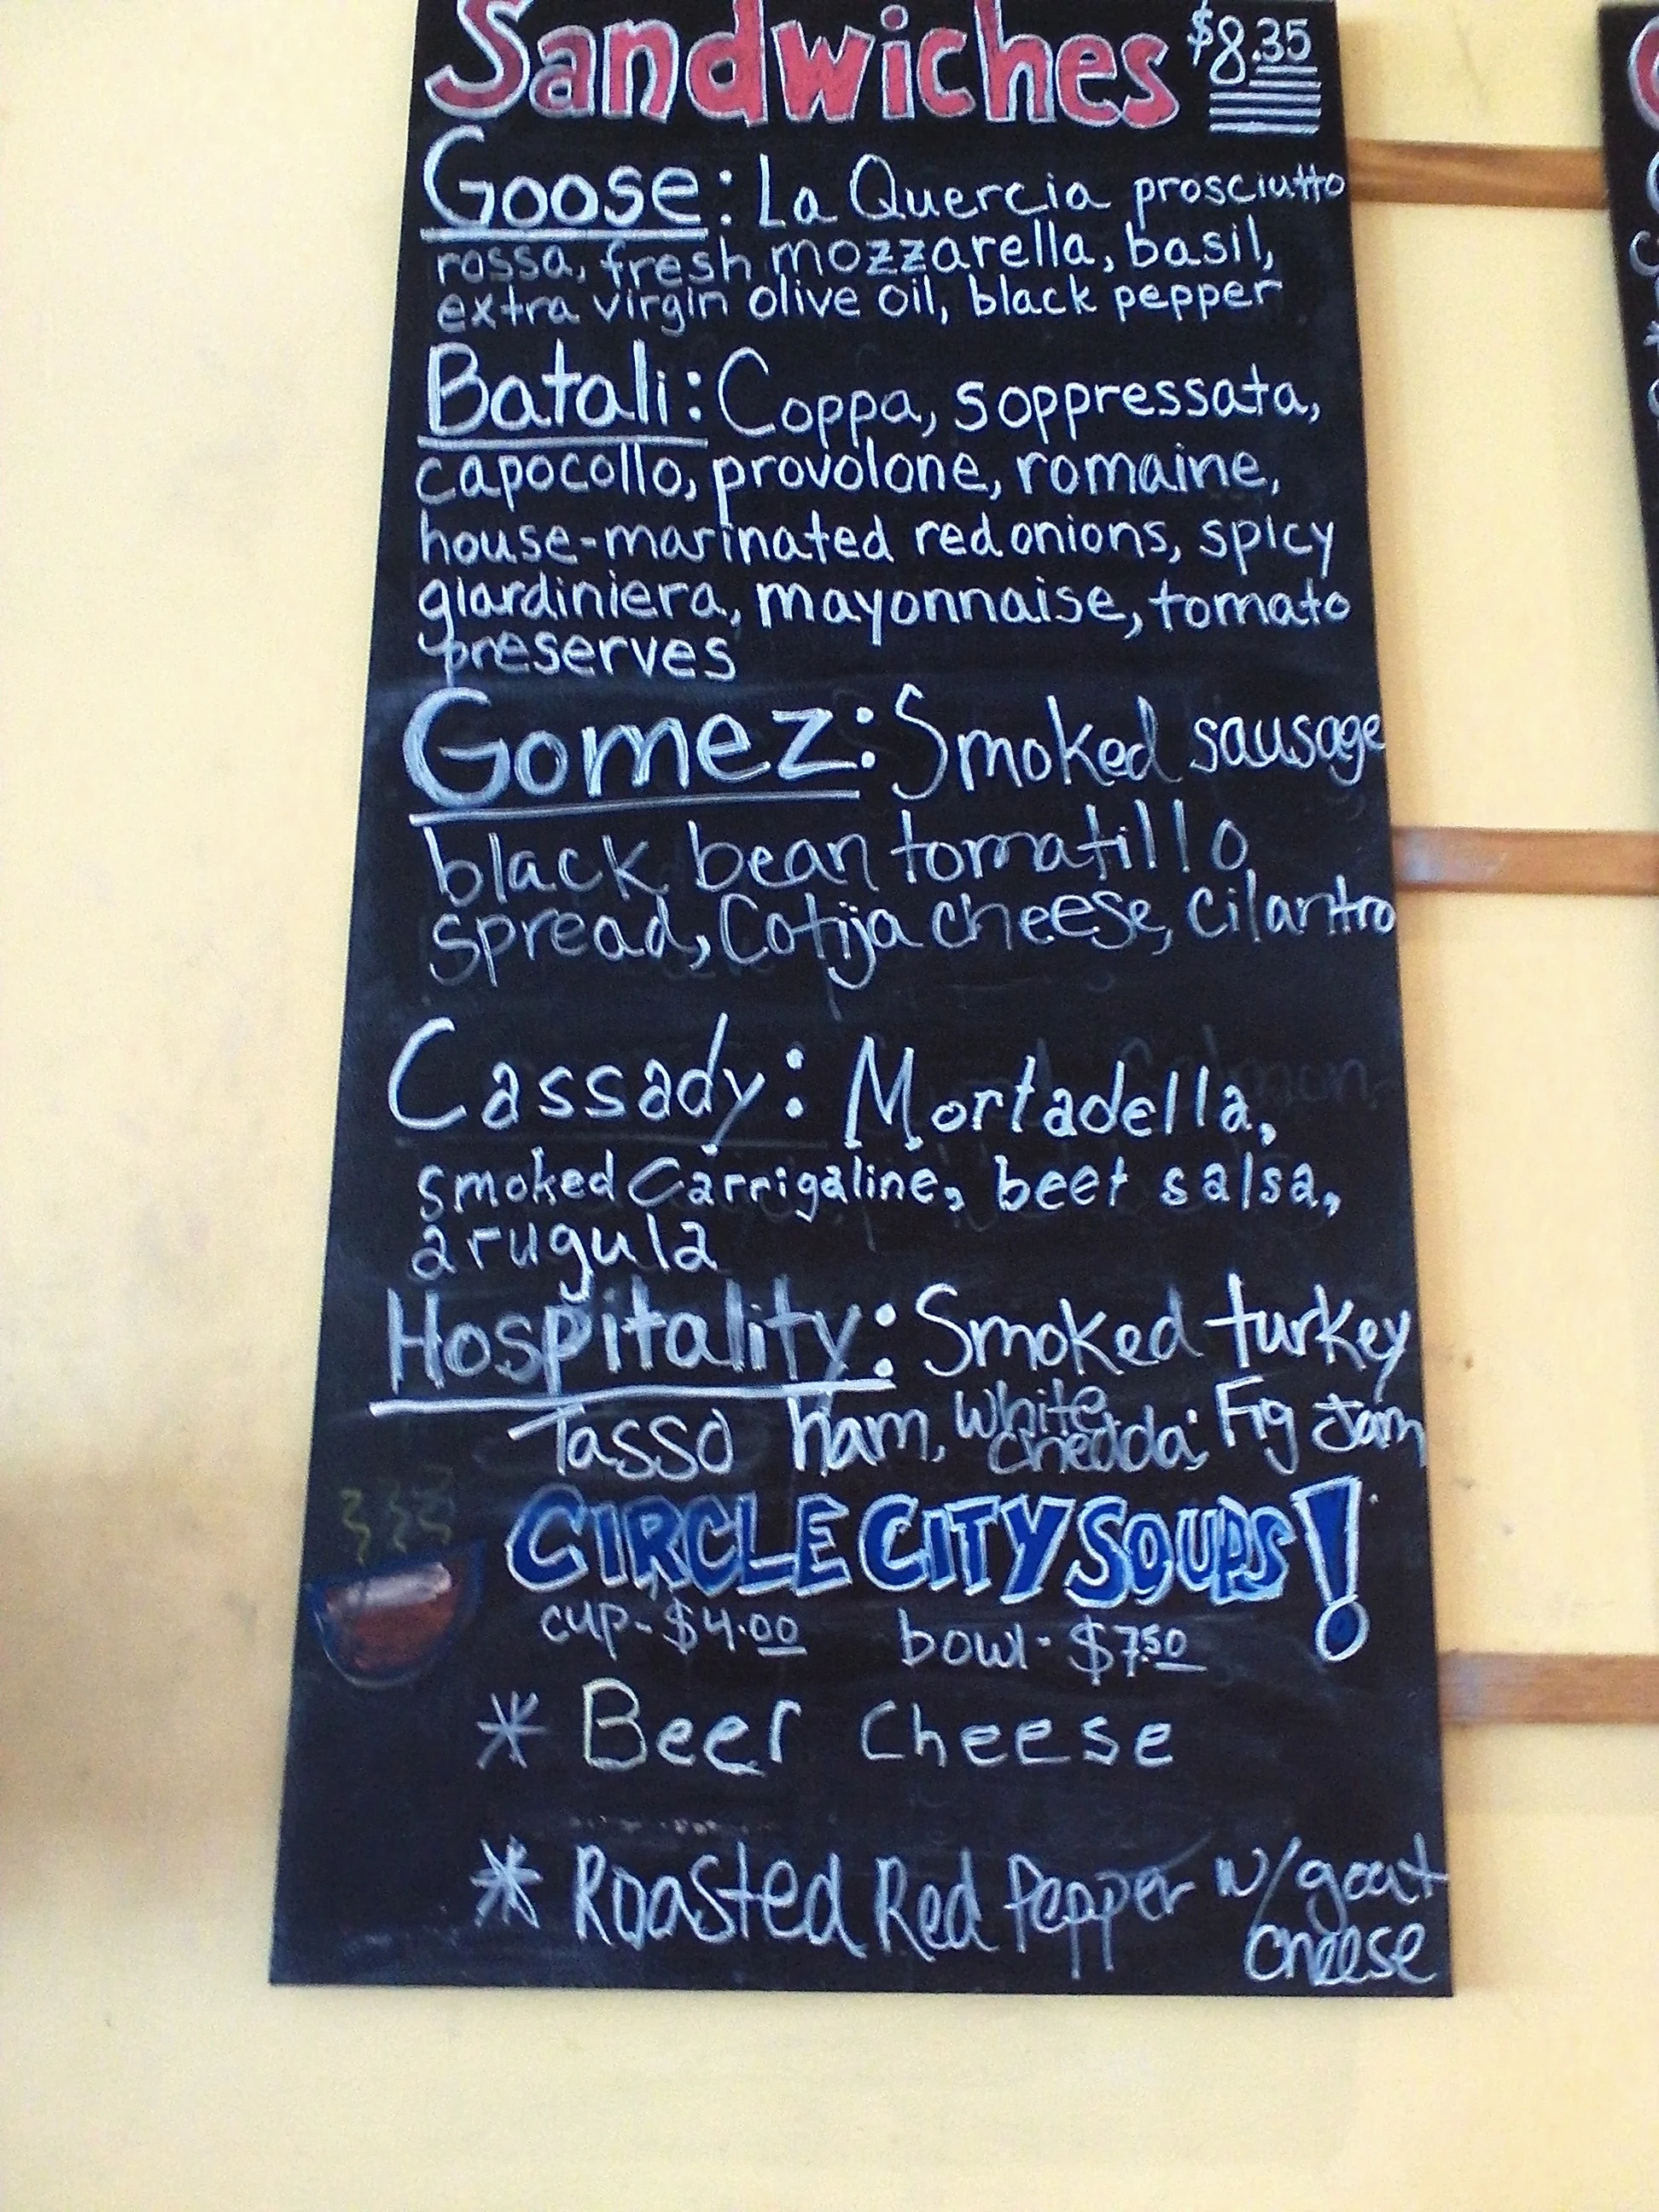 Sandwiches $8.35
Goose: La Quercia prosciutto
rossa, fresh mozzarella, basil,
extra virgin olive oil, black pepper
Batali: Coppa, soppressata,
capocollo, provolone, romaine,
house-marinated red onions, spicy
giardiniera, mayonnaise, tomato
preserves
Gomez: Smoked sausage
black bean tomatillo
spread, Cotija cheese, cilantro
Cassady: Mortadella,
smoked Carrigaline, beet salsa,
arugula
Hospitality: Smoked turkey
Tasso ham, white chedda; Fig Jam
CIRCLE CITY SOUPS!
cup-$4.00 bowl-$7.50
* Beer Cheese
* Roasted Red Pepper w/goat
cheese